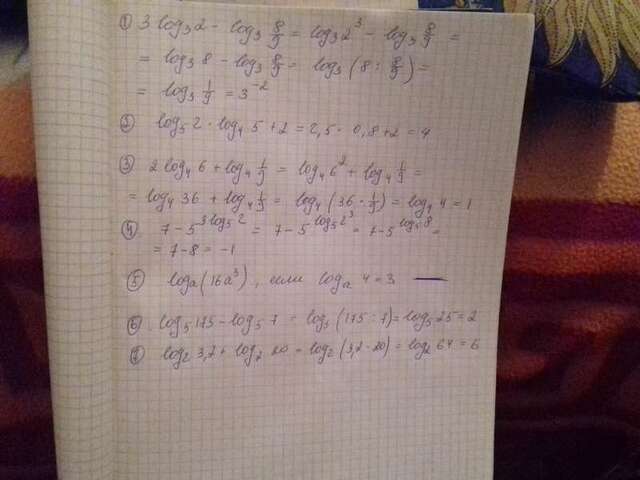 ① 3 log₃2 - log₃ 8/9 = log₃2³ - log₃ 8/9 =
= log₃8 - log₃ 8/9 = log₃(8 : 8/9) =
= log₃ 1/9 = 3⁻²
② log₅2 · log₄5 + 2 = 2,5 · 0,8 + 2 = 4
③ 2 log₄6 + log₄ 1/9 = log₄6² + log₄ 1/9 =
= log₄36 + log₄ 1/9 = log₄(36 · 1/9) = log₄4 = 1
④ 7 - 5^(3 log₅2) = 7 - 5^(log₅2³) = 7 - 5^(log₅8) =
= 7 - 8 = -1
⑤ logₐ(16a³), если logₐ4 = 3
⑥ log₅175 - log₅7 = log₅(175 : 7) = log₅25 = 2